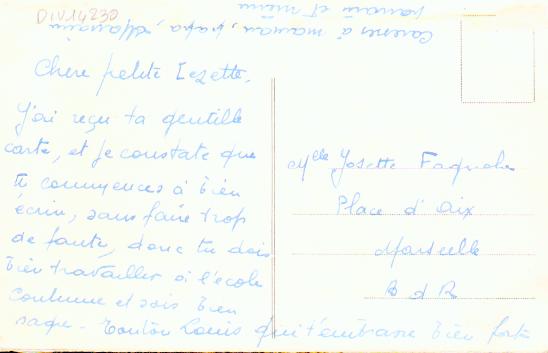 DIV14230
Caresses à maman, papa, Maxaim
parrain et mémé
Chère petite Zezette,
J'ai reçu ta gentille
carte, et je constate que
tu commences à bien
écrire, sans faire trop
de faute, donc tu dois
bien travailler à l'école
continue et sois bien
sage - Tonton Louis qui t'embrasse bien fort
Mlle Josette
Place d'Aix
Marseille
B d R